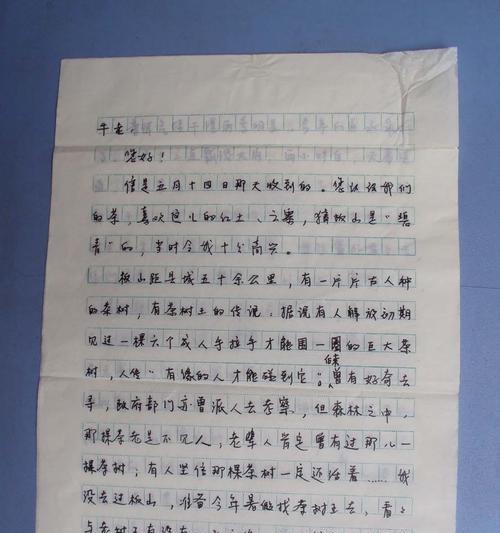 牛老
您好！
信是五月十四日那天收到的。您说说我们
的茶，喜欢这儿的红土、云雾，猜板山是“碧
青”的，当时令我十分高兴。
板山距县城五十余公里，有一片片古人种
的茶树，有茶树王的传说：据说有人解放初期
见过一棵六个成人手拉手才能围一圈的巨大茶
树，人传“有缘的人才能碰到它”。后来曾有好奇者去
寻，政府部门亦曾派人去考察，但森林之中，
那棵茶老是不见人，老辈人肯定曾有过那么一
棵茶树；有人坚信那棵茶树一定还活着……我
没去过板山，准备今年暑假找茶树王去，看
与茶树王有没有